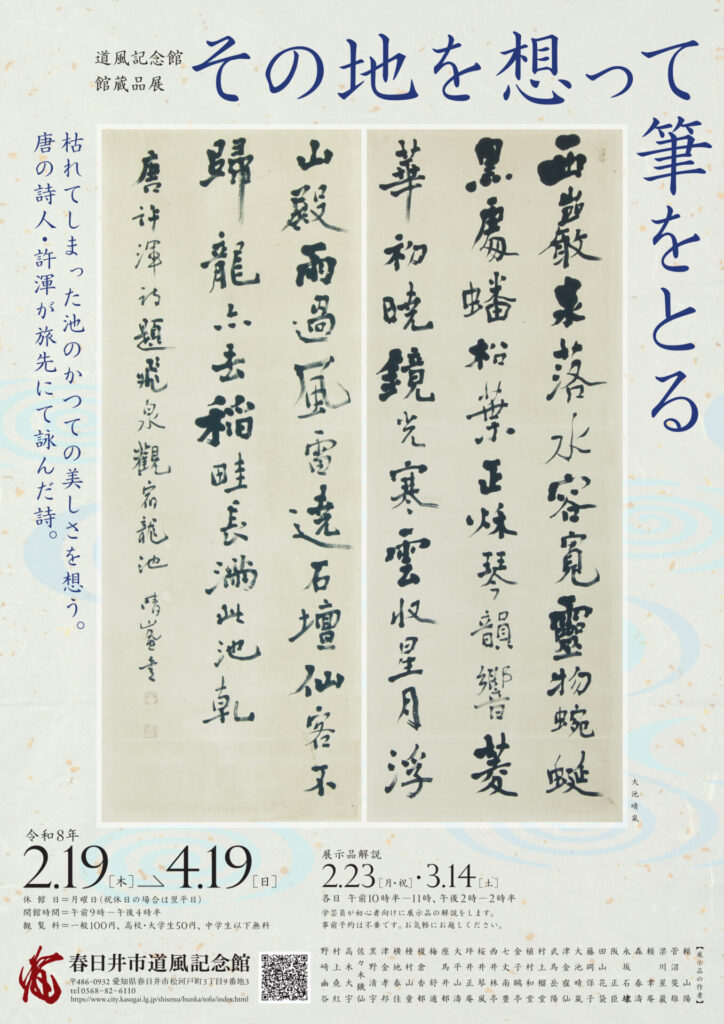 道風記念館
館蔵品展
その地を想って
筆をとる
枯れてしまった池のかつての美しさを想う。
唐の詩人・許渾が旅先にて詠んだ詩。
西巖泉落水容寛靈物蜿蜒
黒處蟠松葉正秋琴韻響菱
華初曉鏡光寒雲収星月浮
山殿雨過風雷遶石壇仙客不
歸龍亦去稲畦長満此池乾
唐許渾詩題飛泉觀宿龍池 晴嵐書
大池晴嵐
令和8年
2.19[木]→4.19[日]
休館日=月曜日(祝休日の場合は翌平日)
開館時間=午前9時―午後4時半
観覧料=一般100円、高校・大学生50円、中学生以下無料
展示品解説
2.23[月・祝]・3.14[土]
各日 午前10時半―11時、午後2時―2時半
学芸員が初心者向けに展示品の解説をします。
事前予約は不要です。お気軽にお越しください。
春日井市道風記念館
〒486-0932 愛知県春日井市松河戸町5丁目9番地3
tel 0568-82-6110
https://www.city.kasugai.lg.jp/shisetsu/bunka/tofu/index.html
【展示品の作者】
頼山陽
菅沼斐雄
梁川星巌
頼聿庵
森春濤
永坂石埭
阪正臣
田山花袋
藤岡保子
大池晴嵐
津金寉仙
武馬岳陽
村上榴堂
植村和堂
金子鷗亭
桜井琴風
坪井正庵
大平山濤
梅舒適
榎倉香邨
種村山童
津金孝邦
黒野清宇
佐々木鉄仙
高木大宇
野崎幽谷